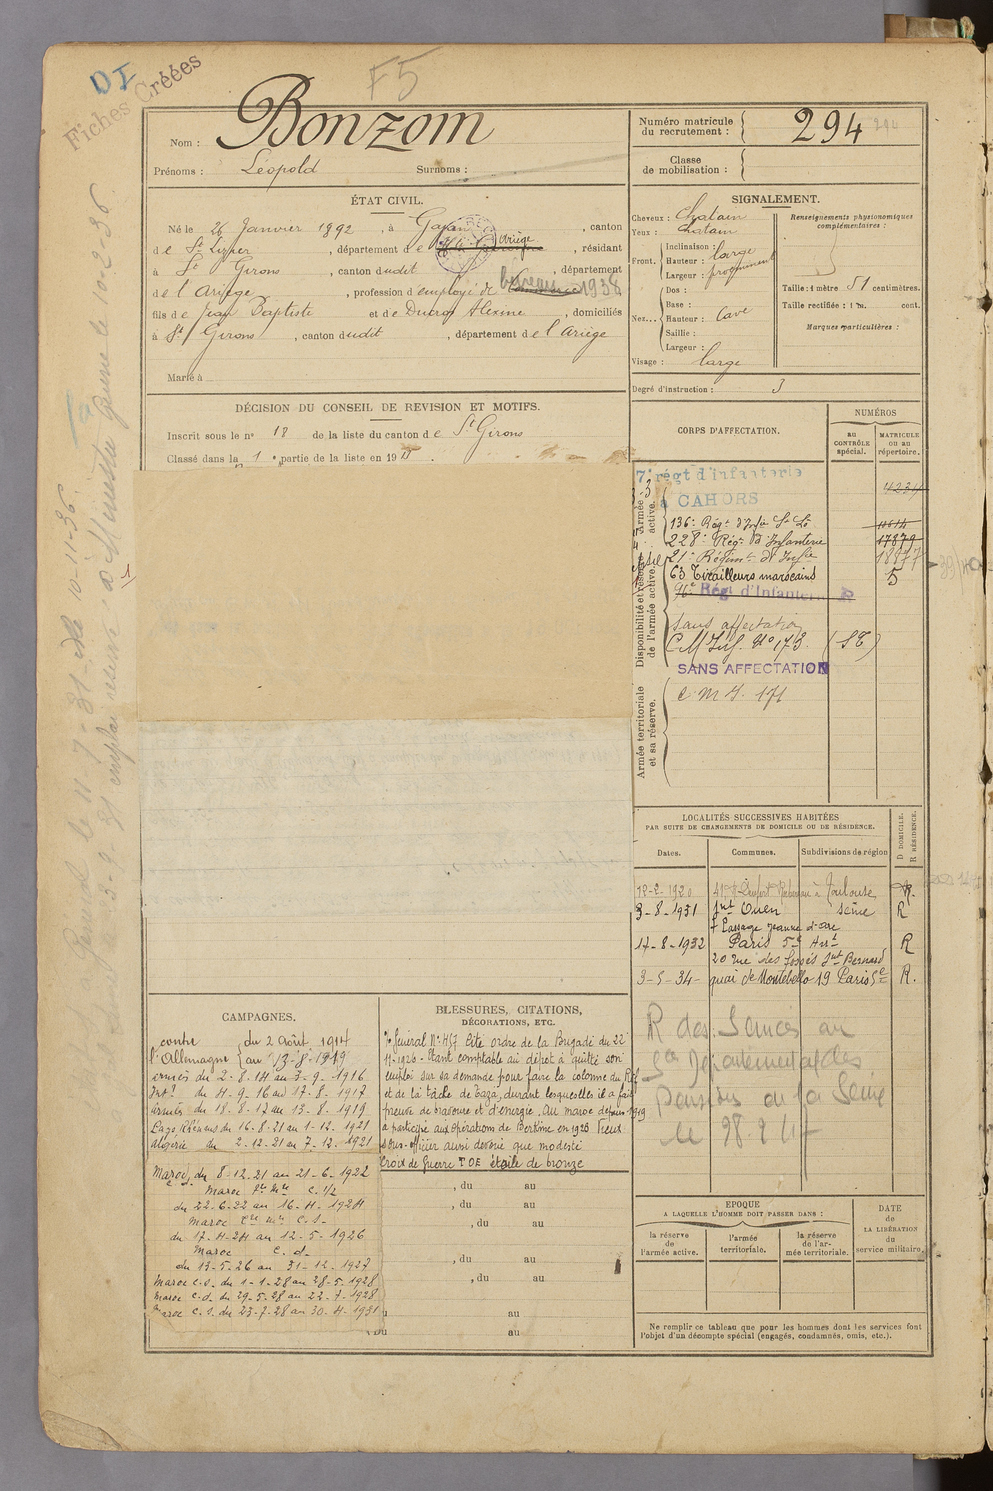 DI
Fiches Créées
F5
Nom : Bonzom
Prénoms : Léopold Surnoms :
Numéro matricule du recrutement : 294
Classe de mobilisation :
ÉTAT CIVIL.
Né le 26 Janvier 1892, à Gajan, canton
de St Lizier, département de Ariège, résidant
à St Girons, canton dudit, département
de l'Ariège, profession d'employé de 1938
fils de Jean Baptiste et de Ducros Alexine, domiciliés
à St Girons, canton dudit, département de l'Ariège
Marié à
SIGNALEMENT.
Cheveux : Chatain
Yeux : Chatain
Front. Inclinaison :
Hauteur : large
Largeur : proéminent
Nez... Dos :
Base :
Hauteur : cave
Saillie :
Largeur :
Visage : large
Renseignements physionomiques complémentaires :
Taille : 1 mètre 51 centimètres.
Taille rectifiée : 1 m. cent.
Marques particulières :
Degré d'instruction : 3
DÉCISION DU CONSEIL DE REVISION ET MOTIFS.
Inscrit sous le n° 18 de la liste du canton de St Girons
Classé dans la 1e partie de la liste en 19
CORPS D'AFFECTATION.
NUMÉROS
AU CONTRÔLE spécial.
MATRICULE ou au répertoire.
Armée active.
7e régt d'infanterie
à CAHORS
136e Régt d'Infie St Lô
228e Régt d'Infanterie
Disponibilité et réserve de l'armée active.
21e Régiment d'Infie
63 Tirailleurs marocains 5
Régt d'Infanterie
Sans affectation
C.M Inf. No 173. (ST)
SANS AFFECTATION
Armée territoriale et sa réserve.
C M I. 171
LOCALITÉS SUCCESSIVES HABITÉES
PAR SUITE DE CHANGEMENTS DE DOMICILE OU DE RÉSIDENCE.
Dates. Communes. Subdivisions de région D DOMICILE. R RÉSIDENCE.
Toulouse
3-8-1931 Snt Ouen Seine R
7 Passage Jeanne d'arc
14-8-1932 Paris 5e Arrt R
20 rue des fossés Snt Bernard
3-5-34- quai de Montebello 19 Paris 5e R.
R des Services au
Départementales des
Pensions de la Seine
CAMPAGNES.
contre l'Allemagne du 2 Août 1914
au 13-8-1919
armées du 2-8-14 au 3-9-1916
Int. du 4-9-16 au 17-8-1917
armées du 18-8-17 au 13-8-1919
Pays Rhénans du 16-8-21 au 1-12-1921
algérie du 2-12-21 au 7-12-1921
Maroc du 8-12-21 au 21-6-1922
Maroc C. 1/2
du 22-6-22 au 16-4-1924
Maroc C. S.
du 17-4-24 au 12-5-1926
Maroc C. d.
du 13-5-26 au 31-12-1927
Maroc C.S. du 1-1-28 au 28-5-1928
Maroc C.d. du 29-5-28 au 22-7-1928
Maroc C.S. du 23-7-28 au 30-4-1931
BLESSURES, CITATIONS,
DÉCORATIONS, ETC.
Général No 457. Cité ordre de la Brigade du 22
11-1926 - Etant comptable au dépôt à quitté son
emploi sur sa demande pour faire la colonne du Rif
et de la tâche de Taza, durant lesquelles il a fait
preuve de bravoure et d'énergie. Au maroc depuis 1919
a participé aux opérations de en 1920 Vieux
sous-officier aussi dévoué que modeste
Croix de Guerre TOE étoile de bronze
, du au
, du au
, du au
, du au
, du au
au
du au
EPOQUE
A LAQUELLE L'HOMME DOIT PASSER DANS :
la réserve de l'armée active.
l'armée territoriale.
la réserve de l'armée territoriale.
DATE de LA LIBÉRATION du service militaire.
Ne remplir ce tableau que pour les hommes dont les services font
l'objet d'un décompte spécial (engagés, condamnés, omis, etc.).